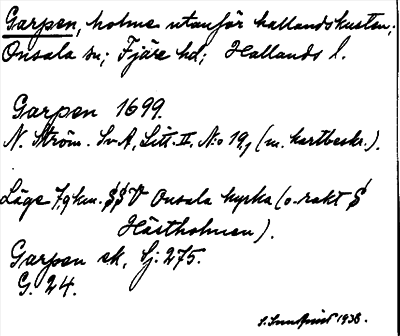 Garpen, holme utanför hallandskusten;
Onsala sn; Fjäre hd; Hallands l.
Garpen 1699.
N. Ström. Sv A, Litt. II. N:o 19, (m. kartbeskr.).
Läge 7,9 km. SSV Onsala kyrka (o. rakt S
Hästholmen).
Garpen ek, bj. 275.
G. 24.
S. Sundqvist 1938.